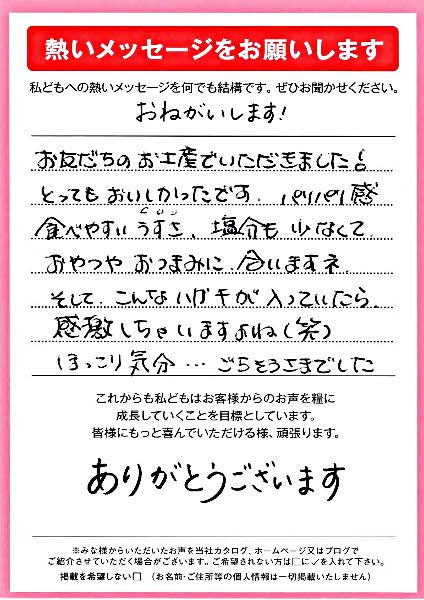 熱いメッセージをお願いします
私どもへの熱いメッセージを何でも結構です。ぜひお聞かせください。
おねがいします!
お友だちのお土産でいただきました!
とってもおいしかったです。パリパリ感
食べやすいうすさ、塩分も少なくて、
おやつやおつまみに、合いますネ。
そして、こんなハガキが入っていたら、
感激しちゃいますよね(笑)
ほっこり気分…ごちそうさまでした
これからも私どもはお客様からのお声を糧に
成長していくことを目標としています。
皆様にもっと喜んでいただける様、頑張ります。
ありがとうございます
※みな様からいただいたお声を当社カタログ、ホームページ又はブログで
ご紹介させていただく場合がございます。ご希望されない方は□に✓を入れて下さい。
掲載を希望しない□ (お名前・ご住所等の個人情報は一切掲載いたしません)